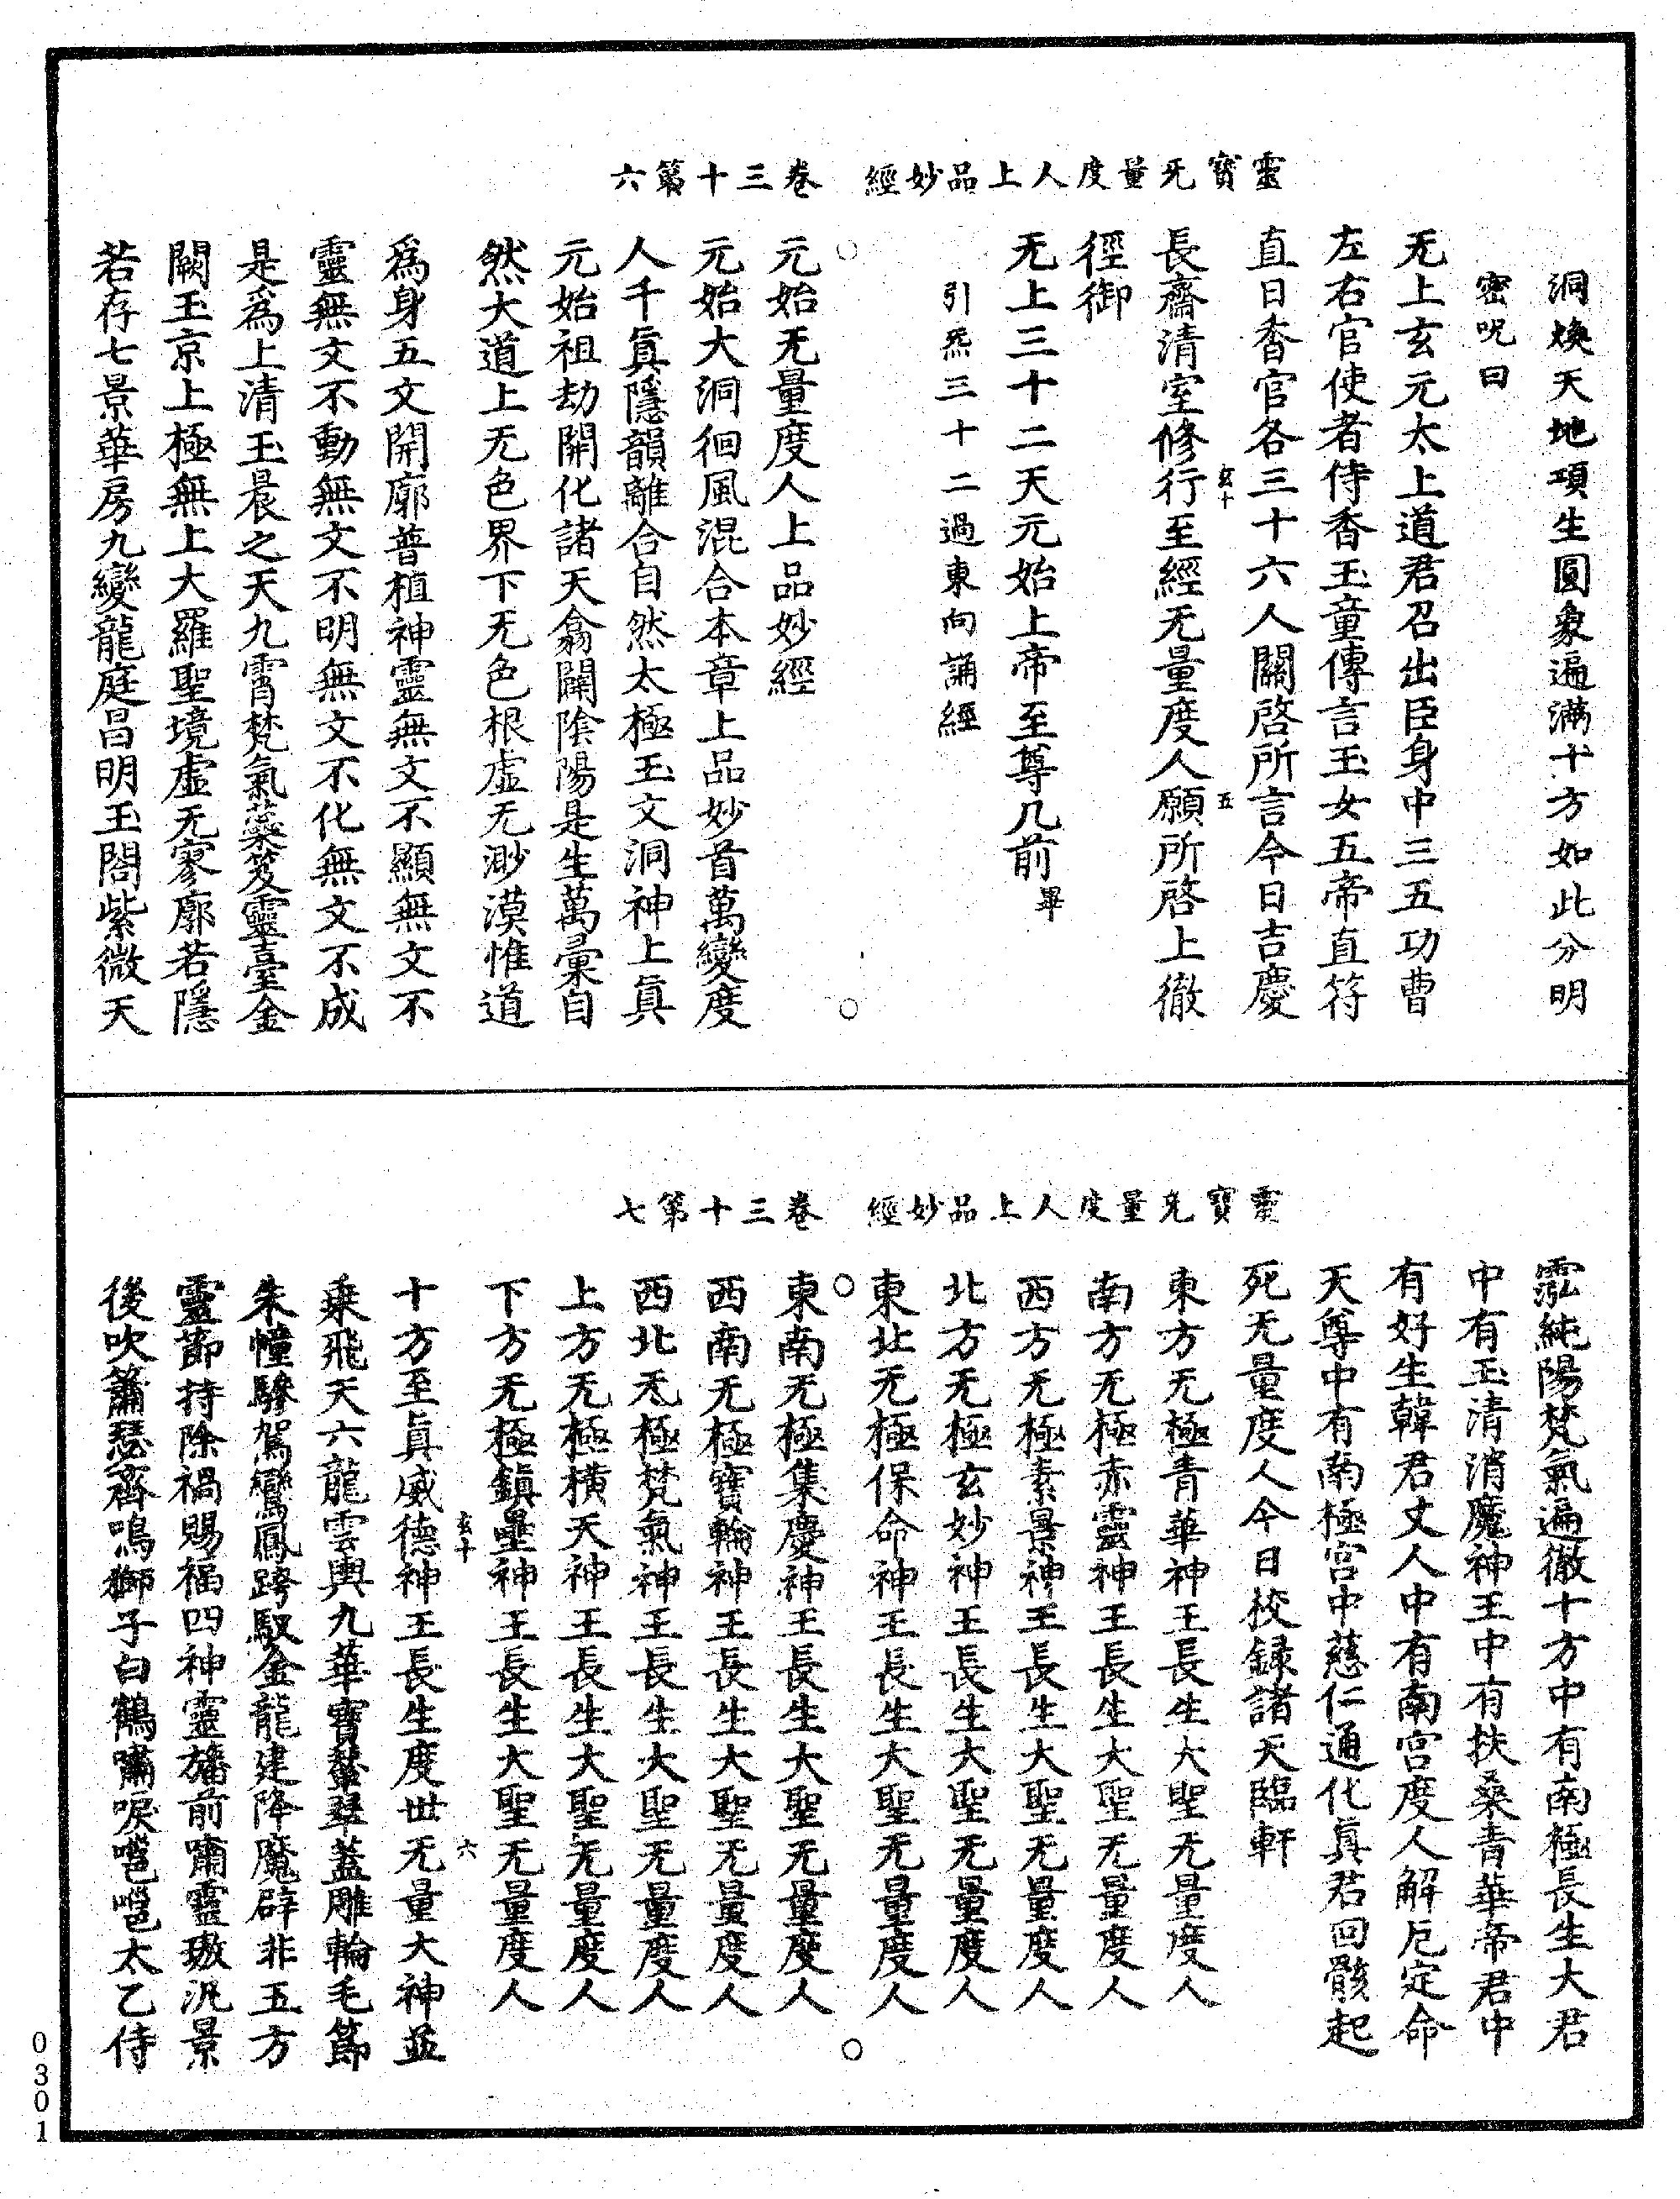 靈寶无量度人上品妙經　卷三十第六
洞煥天地項生圓象遍滿十方如此分明
密呪曰
无上玄元太上道君召出臣身中三五功曹
左右官使者侍香玉童傳言玉女五帝直符
直日香官各三十六人關啓所言今日吉慶
玄十　五
長齋清室修行至經无量度人願所啓上徹
徑御
无上三十二天元始上帝至尊几前畢
引炁三十二過東向誦經
元始无量度人上品妙經
元始大洞徊風混合本章上品妙首萬變度
人千眞隱韻離合自然太極玉文洞神上眞
元始祖劫開化諸天翕闢陰陽是生萬彙自
然大道上无色界下无色根虛无渺漠惟道
爲身五文開廓普植神靈無文不顯無文不
靈無文不動無文不明無文不化無文不成
是爲上清玉晨之天九霄梵氣蘂笈靈臺金
闕玉京上極無上大羅聖境虛无寥廓若隱
若存七景華房九變龍庭昌明玉閤紫微天
靈寶无量度人上品妙經　卷三十第七
霐純陽梵氣遍徹十方中有南極長生大君
中有玉清消魔神王中有扶桑青華帝君中
有好生韓君丈人中有南宮度人解厄定命
天尊中有南極宮中慈仁通化眞君回骸起
死无量度人今日校錄諸天臨軒
東方无極青華神王長生大聖无量度人
南方无極赤靈神王長生大聖无量度人
西方无極素景神王長生大聖无量度人
北方无極玄妙神王長生大聖无量度人
東北无極保命神王長生大聖无量度人
東南无極集慶神王長生大聖无量度人
西南无極寶輪神王長生大聖无量度人
西北无極梵氣神王長生大聖无量度人
上方无極橫天神王長生大聖无量度人
下方无極鎮壘神王長生大聖无量度人
玄十　六
十方至眞威德神王長生度世无量大神並
乘飛天六龍雲輿九華寶輦翠蓋雕輪毛節
朱幢驂駕鸞鳳跨馭金龍建降魔辟非五方
靈節持除禍賜福四神靈旛前嘯靈璈汎景
後吹簫瑟齊鳴獅子白鶴嘯唳嗈嗈太乙侍
0301